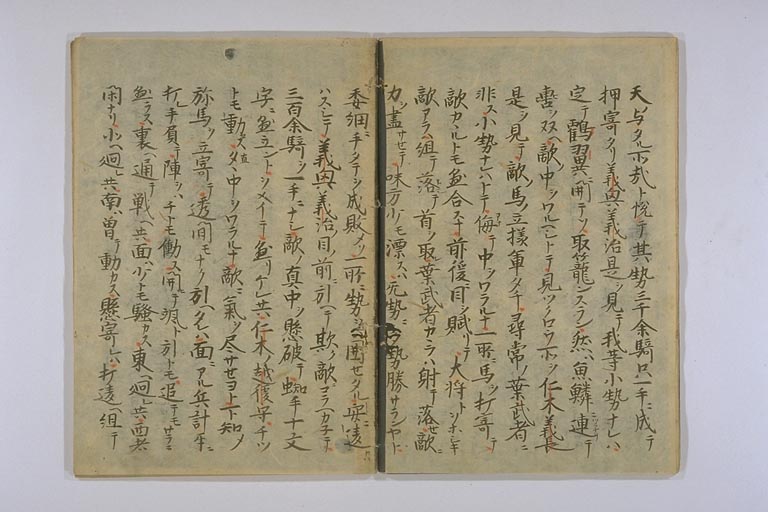 天与タル所哉ト悦テ其勢三千余騎只一手ニ成テ
押寄タリ義興義治是ヲ見テ我等小勢ナレハ
定テ鶴翼ニ開テソ取篭ンスラン然ハ魚鱗ニ連テ
轡ヲ双テ敵ノ中ヲワルヘシトテ見ツクロウ所ヲ仁木義長
是ヲ見テ敵ノ馬ノ立様軍タチ尋常ノ葉武者ニ
非ス小勢ナレハトテ侮テ中ヲワラルナ一所ニ馬ヲ打寄テ
敵カヽルトモ懸合スナ前後ニ目ヲ賦リテ大将トヲホシキ
敵アラハ組テ落テ首ヲ取葉武者カヽラハ射テ落セ敵ニ
力ヲ尽サセテ味方少モ漂スハ無勢ニ多勢勝サランヤト
委細ニ手タテヲ成敗メ一所ニ勢ヲ囲セタル案ニ違
ハスシテ義興義治目ノ前ニ引ヘテ欺ク敵ヲコラヘカ子テ
三百余騎ヲ一手ニナシ敵ノ真中ヲ懸破テ蜘手十文
字ニ懸立ントヲメイテ懸リケレ共仁木ノ越後守チツ
トモ動ス真タヽ中ヲワラルナ敵ニ氣ヲ尽サセヨト下知メ
弥馬ヲ立寄テ透間モナク引ヘタレハ面ニアル兵計互ニ
打ル手負テ陣ヲハチトモ働ス開テ颯ト引トモ追テモサラニ
懸ラス裏ヘ通テ戦ヘ共面ハ少トモ騒カス東ヘ廻レ共西者
閑ナリ北ヘ廻レ共南ハ曽テ動カス懸寄レハ打違ヘ組テ